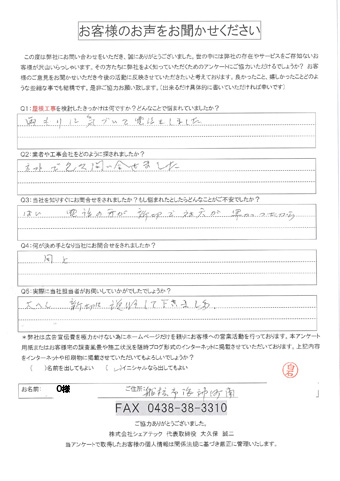 お客様のお声をお聞かせください
この度は弊社にお問い合わせをいただき、誠にありがとうございました。世の中には弊社の存在やサービスをご存知ないお
客様が沢山いらっしゃいます。その方たちに弊社をよく知っていただくためのアンケートにご協力いただけるでしょうか？ お客
様のご意見をお聞かせいただき今後の活動に反映させていただきたいと考えております。良かったこと、嬉しかったことどのよ
うな些細な事でも結構です。是非ご協力お願い致します。（出来るだけ具体的に書いていただければ幸いです）
Q1：屋根工事を検討したきっかけは何ですか？どんなことで悩まれていましたか？
雨もりに気づいて電話をしました
Q2：業者や工事会社をどのように探されましたか？
ネットで色々問い合せました
Q3：当社を知りすぐにお問合せをされましたか？もし悩まれたとしたらどんなことがご不安でしたか？
はい 電話の方が親切で対応が早かったから
Q4：何が決め手となり当社にお問合せをされましたか？
同上
Q5：実際に当社担当者がお伺いしていかがでしたでしょうか？
大へん親切に説明して下さいました
＊弊社は広告宣伝費を極力かけない為にホームページだけを頼りにお客様への営業活動を行っております。本アンケート
用紙またはお客様宅の調査風景や施工状況を随時ブログ形式のインターネットに掲載させていただいております。上記内容
をインターネットや印刷物に掲載させていただいてもよろしいでしょうか？
（ ）名前を出してもよい （✓）イニシャルなら出してもよい
お名前： O様 ご住所：
FAX 0438-38-3310
ご協力ありがとうございました。
株式会社シェアテック 代表取締役 大久保 誠二
当アンケートで取得したお客様の個人情報は関係法規に基づき厳正に管理いたします。